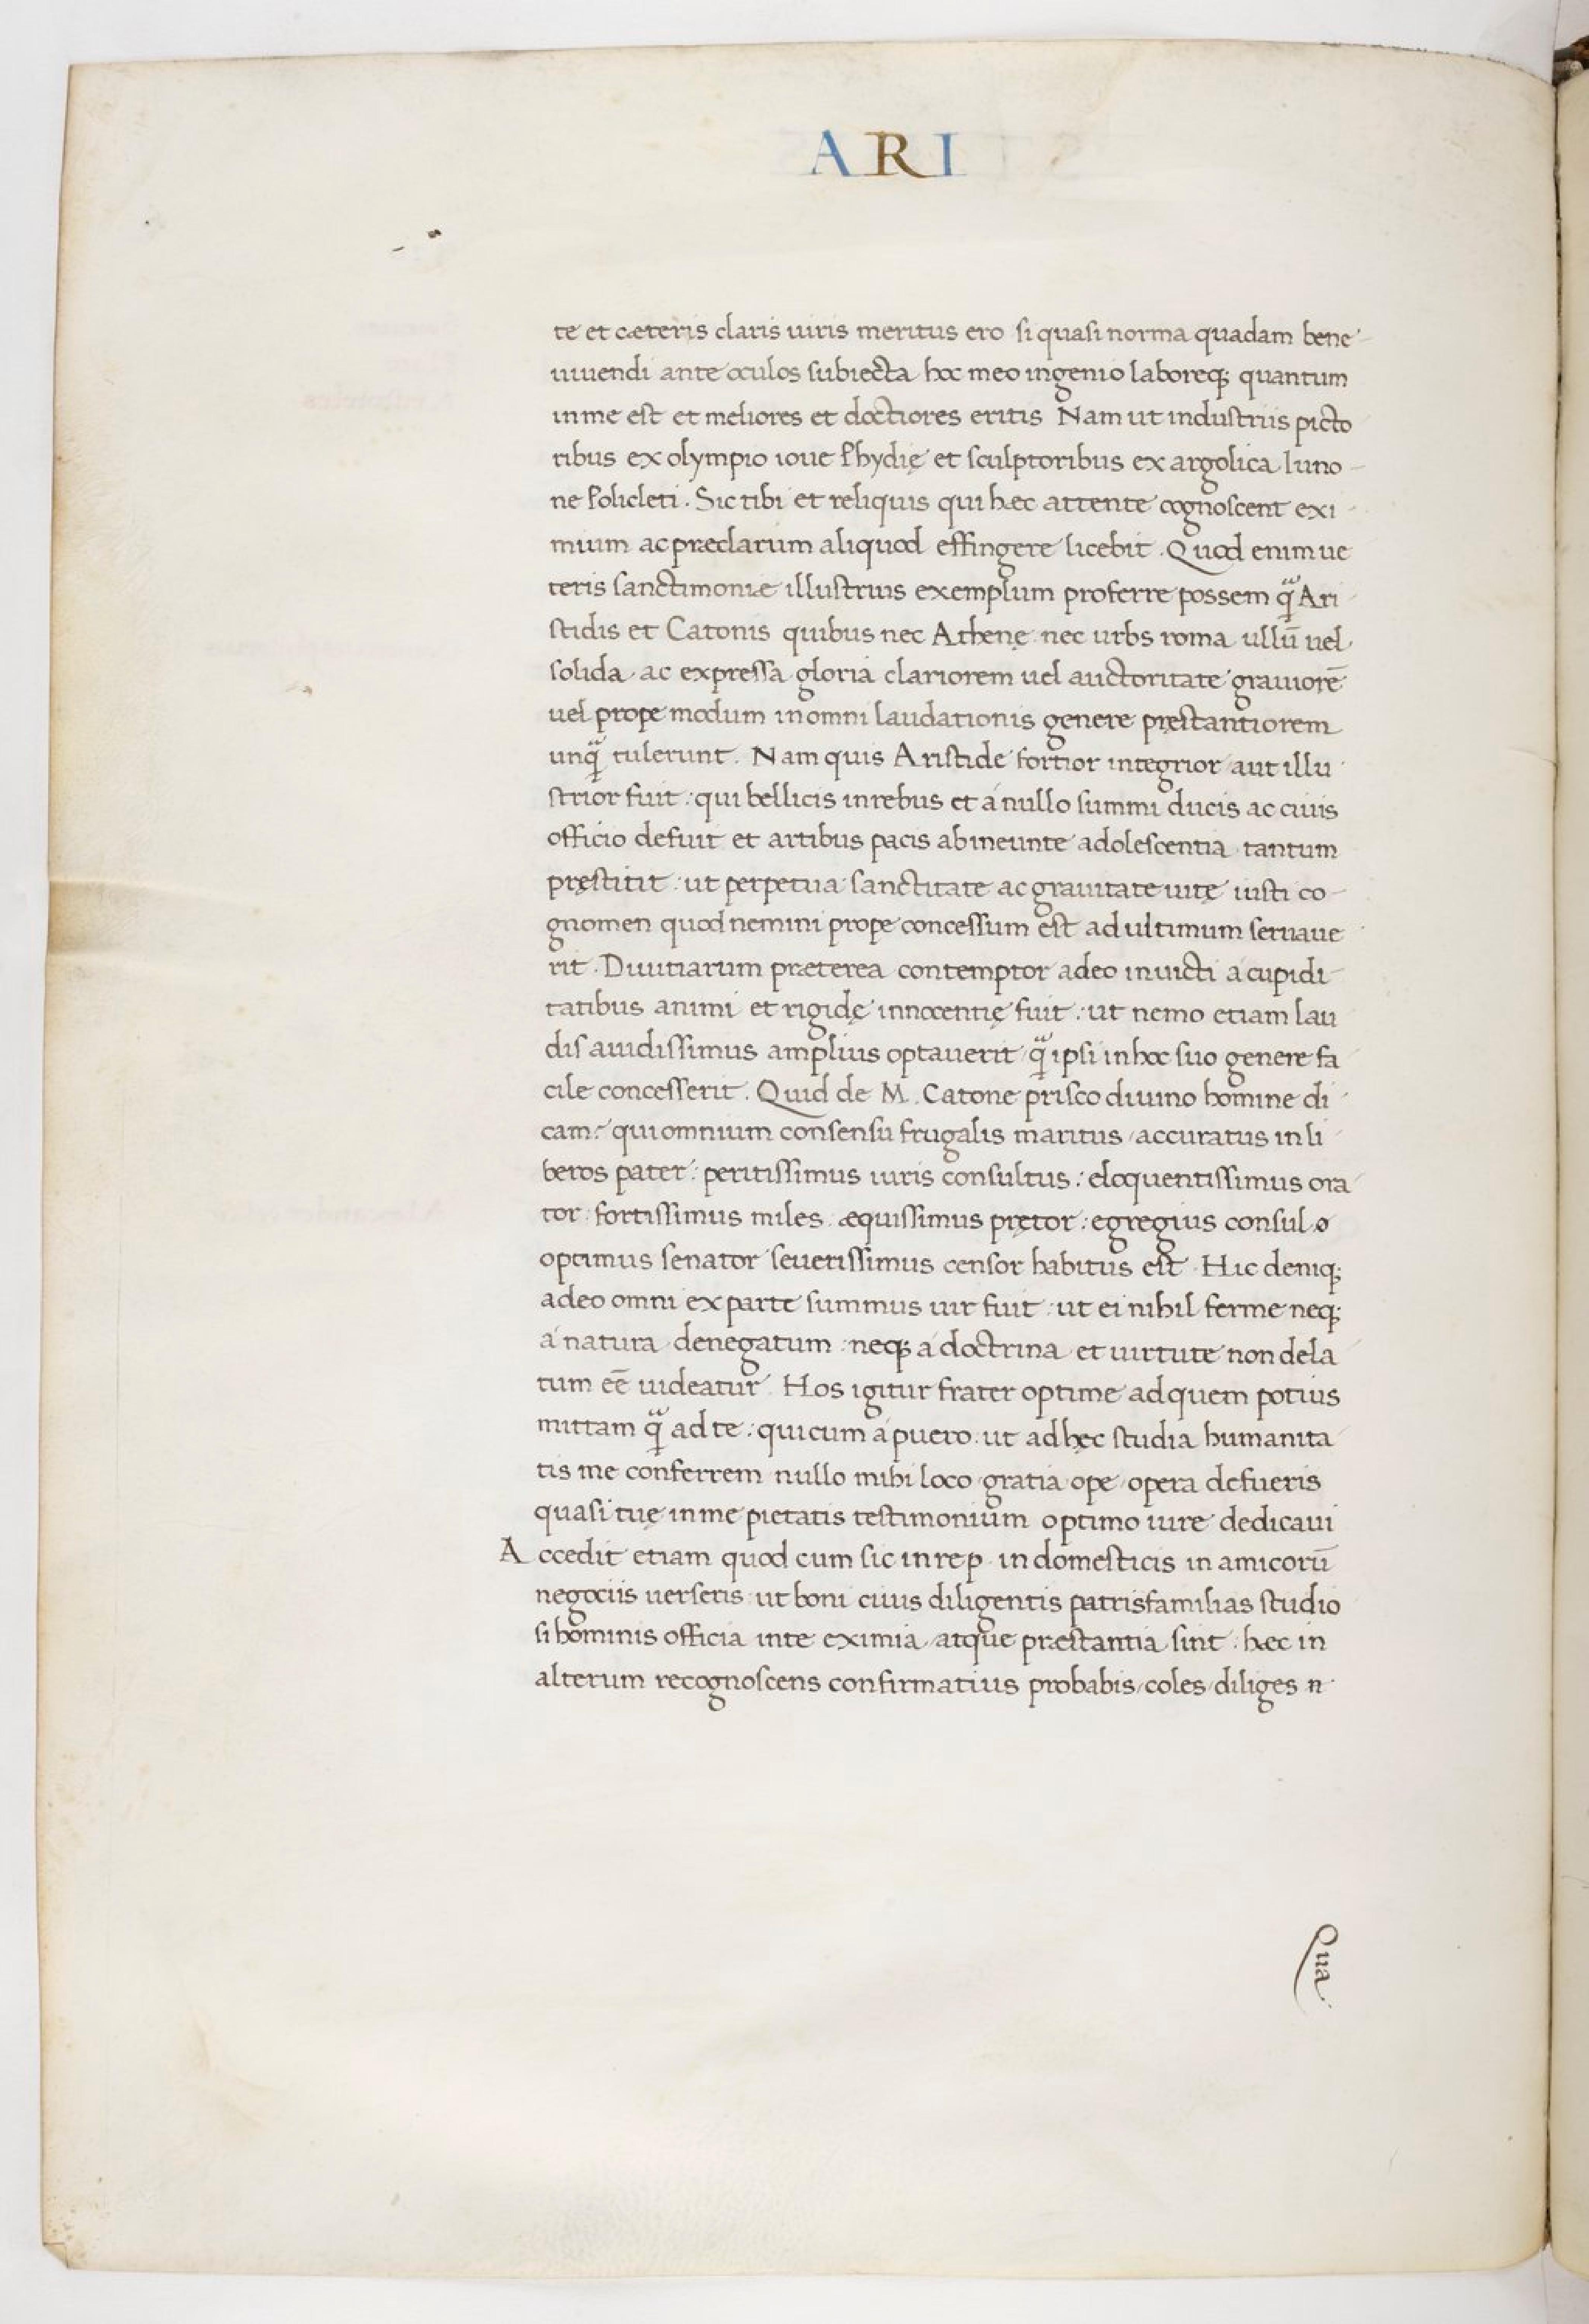 ARI
te et cæteris claris uiris meritus ero si quasi norma quadam bene
uiuendi ante oculos subiecta hoc meo ingenio laboreq; quantum
in me est et meliores et doctiores eritis Nam ut industriis picto
ribus ex olympio ioue Phydię et sculptoribus ex argolica Iuno
ne Policleti. Sic tibi et reliquis qui hæc attente cognoscent exi
mium ac præclarum aliquod effingere licebit. Quod enim ue
teris sanctimoniæ illustrius exemplum proferre possem q̃ Ari
stidis et Catonis quibus nec Athenę nec urbs roma ullū uel
solida ac expressa gloria clariorem uel auctoritate grauiorē
uel prope modum in omni laudationis genere pręstantiorem
unq̃ tulerunt. Nam quis Aristide fortior integrior aut illu
strior fuit: qui bellicis in rebus et á nullo summi ducis ac ciuis
officio defuit et artibus pacis ab ineunte adolescentia tantum
pręstitit: ut perpetua sanctitate ac grauitate uitę iusti co-
gnomen quod nemini prope concessum est ad ultimum seruaue
rit. Diuitiarum præterea contemptor adeo inuicti á cupidi
tatibus animi et rigidę innocentię fuit: ut nemo etiam lau
dis auidissimus amplius optauerit q̃ ipsi in hoc suo genere fa
cile concesserit. Quid de M. Catone prisco diuino homine di
cam? qui omnium consensu frugalis maritus/accuratus in li
beros pater: peritissimus iuris consultus: eloquentissimus ora
tor: fortissimus miles. æquissimus prętor: egregius consul
optimus senator seuerissimus censor habitus est. Hic deniq;
adeo omni ex parte summus uir fuit: ut ei nihil ferme neq;
á natura denegatum: neq; á doctrina et uirtute non dela
tum eē uideatur. Hos igitur frater optime ad quem potius
mittam q̃ ad te: qui cum á puero ut ad hęc studia humanita
tis me conferrem nullo mihi loco gratia ope/opera defueris
quasi tuę in me pietatis testimonium optimo iure dedicaui
Accedit etiam quod cum sic in rep. in domesticis in amicorū
negociis uerseris: ut boni ciuis diligentis patrisfamilias studio
si hominis officia in te eximia atque præstantia sint: hæc in
alterum recognoscens confirmatius probabis/coles/diliges
Qua